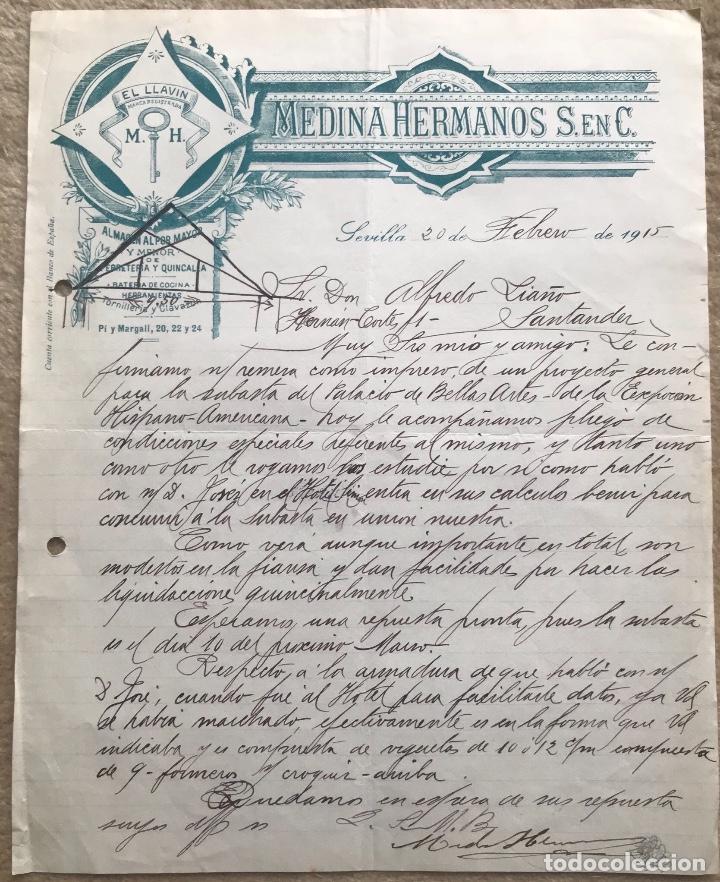 EL LLAVIN
MARCA REGISTRADA
M. H.
MEDINA HERMANOS S. EN C.
ALMACEN AL POR MAYOR
Y MENOR
DE
FERRETERIA Y QUINCALLA
BATERIA DE COCINA
HERRAMIENTAS
Tornilleria y Clavazon
Pi y Margall, 20, 22 y 24
Cuenta corriente con el Banco de España.
9,50
Sevilla 20 de Febrero de 1915
Sr. Don Alfredo Liaño
Hernán-Cortés, 1- Santander
Muy Sr mio y amigo: Le con-
firmamos n/ remesa como impreso, de un proyecto general
para la subasta del Palacio de Bellas Artes- de la Exposción
Hispano-Americana- hoy le acompañamos pliego de
condiciones especiales referentes al mismo, y tanto uno
como otro le rogamos los estudie, por si como habló
con n/ D. José, en el Hotel entra en sus calculos benir para
concurrir á la subasta en union nuestra.
Como verá aunque importante en total son
modestos en la fianza y dan facilidades por hacer las
liquidaccione quincenalmente.
Esperamos, una repuesta pronta, pues la subasta
es el dia 10 del proximo Marzo.
Respecto, á la armadura de que habló con n/
D José, cuando fué al Hotel para facilitarle datos, ya Vd
se habia marchado, efectivamente es en la forma que Vd
indicaba y es compuesta de viguetas de 10 ó 12 c/m compuesta
de 9- formeros s/ croquis- arriba.
Quedamos en espera de sus repuesta
suyos
Q. S. M. B.
Medina Hermanos
todocoleccion
todocoleccion.net